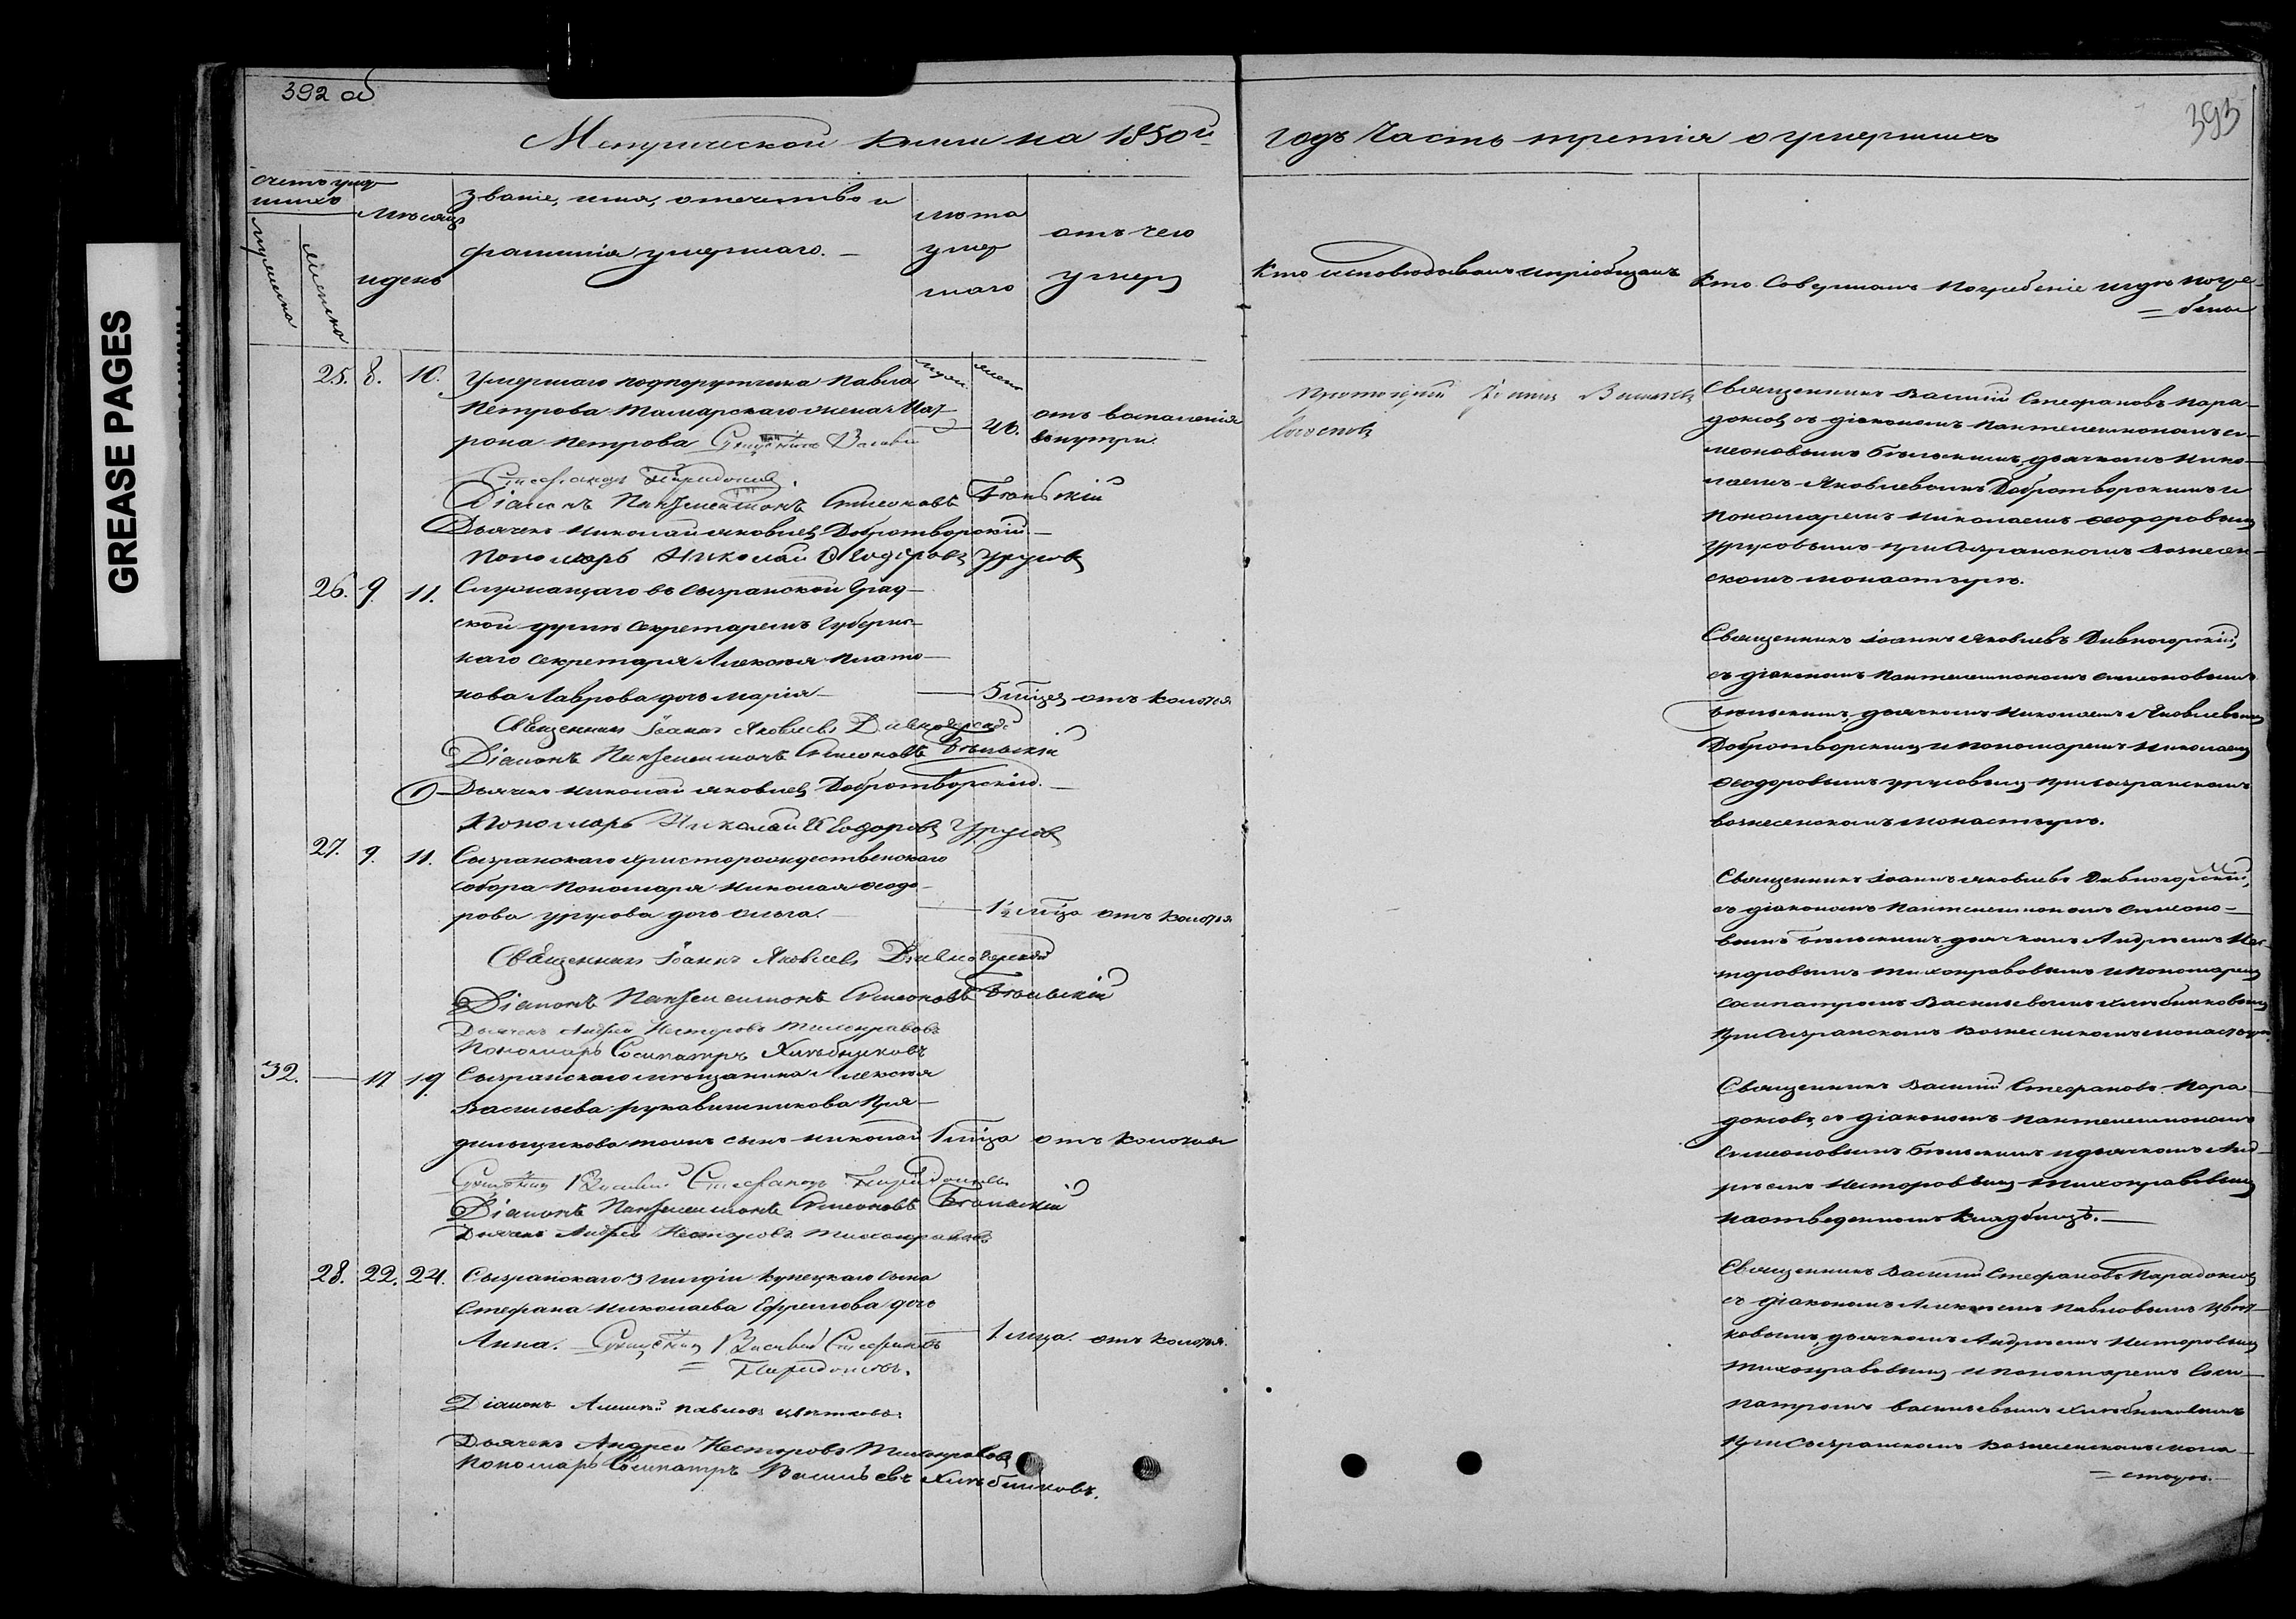 GREASE PAGES
392 об
393
Метрической книги на 1850й
годъ Часть третія о умершихъ
счетъ умер
шихъ
мужеска
женска
Мѣсяцъ
и день
званіе, имя, отечество и
фамилія умершаго. —
лѣта
умер
шаго
отъ чего
умеръ
Кто исповѣдывалъ и пріобщалъ
Кто Совершалъ Погребеніе и гдѣ погре-
= бены
25. 8. 10. Умершаго подпорутчика Павла
Петрова Татарскаго жена Мат-
рона Петрова Священникъ Василій
Стефановъ Парадоксовъ.
муж.
женс.
40.
отъ воспаленія
внутри.
Діаконъ Пантелеимонъ Симеоновъ Бѣльскій
Дьячекъ Николай Яковлевъ Добротворскій.—
Пономарь Николай Ѳеодоровъ Урусовъ
Протоіерей Іоаннъ Васильевъ
Священникъ Василій Стефановъ Пара-
доксовъ съ діакономъ Пантелеимономъ Си-
меоновымъ Бѣльскимъ, дьячкомъ Нико-
лаемъ Яковлевымъ Добротворскимъ и
Пономаремъ Николаемъ Ѳеодоровымъ
Урусовымъ при Сызранскомъ Вознесен-
скомъ монастырѣ.
26. 9. 11. Служащаго въ Сызранской Град-
ской думѣ Секретаремъ Губернс-
каго Секретаря Алексѣя Плато-
нова Лаврова дочь Марія — 5 мцев отъ колотья
Священникъ Іоаннъ Яковлевъ Дивногорскій
Діаконъ Пантелеимонъ Симеоновъ Бѣльскій
Дьячекъ Николай Яковлевъ Добротворскій.—
Пономарь Николай Ѳеодоровъ Урусовъ
Священникъ Іоаннъ Яковлевъ Дивногорскій,
съ діакономъ Пантелеимономъ Симеоновымъ
Бѣльскимъ, дьячкомъ Николаемъ Яковлевымъ
Добротворскимъ и пономаремъ Николаемъ
Ѳеодоровымъ Урусовымъ при Сызранскомъ
Вознесенскомъ монастырѣ.
27. 9. 11. Сызранскаго Христорождественскаго
собора Пономаря Николая Ѳеодо-
рова Урусова дочь Ольга. — 1½ мца отъ колотья
Священникъ Іоаннъ Яковлевъ Дивногорскій
Діаконъ Пантелеимонъ Симеоновъ Бѣльскій
Дьячекъ Андрей Несторовъ Тихонравовъ
Пономарь Сосипатръ Хлѣбниковъ
Священникъ Іоаннъ Яковлевъ Дивногорскій,
съ діакономъ Пантелеимономъ Симеоно-
вымъ Бѣльскимъ, дьячкомъ Андреемъ Нес-
торовымъ Тихонравовымъ и Пономаремъ
Сосипатромъ Васильевымъ Хлѣбниковымъ
при Сызранскомъ Вознесенскомъ монастырѣ.
32. — 17 19 Сызранскаго мѣщанина Алексѣя
Васильева Рукавишникова Пря-
дильщикова тожъ сынъ Николай 1 мца отъ колотья
Священникъ Василій Стефановъ Парадоксовъ
Діаконъ Пантелеимонъ Симеоновъ Бѣльскій
Дьячекъ Андрей Несторовъ Тихонравовъ
Священникъ Василій Стефановъ Пара-
доксовъ, съ діакономъ Пантелеимономъ
Симеоновымъ Бѣльскимъ и дьячкомъ Анд-
реемъ Несторовымъ Тихонравовымъ
на отведенномъ кладбищѣ.—
28. 22. 24. Сызранскаго 3 гилдіи купецкаго сына
Стефана Николаева Ефремова дочь
Анна. Священникъ Василій Стефановъ
= Парадоксовъ.
1 мца. отъ колотья.
Діаконъ Алексѣй Павловъ Цвѣтковъ
Дьячекъ Андрей Несторовъ Тихонравовъ
Пономарь Сосипатръ Васильевъ Хлѣбниковъ.
Священникъ Василій Стефановъ Парадоксовъ
съ діакономъ Алексѣемъ Павловымъ Цвѣт-
ковымъ, дьячкомъ Андреемъ Несторовымъ
Тихонравовымъ и пономаремъ Соси-
патромъ Васильевымъ Хлѣбниковымъ
при Сызранскомъ Вознесенскомъ мона-
= стырѣ.—